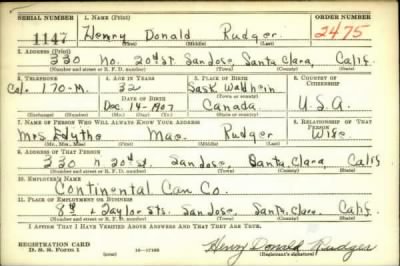 SERIAL NUMBER 1. NAME (Print) ORDER NUMBER
1147 Henry Donald Rudger 2475
(First) (Middle) (Last)
2. ADDRESS (Print)
330 No. 20th St. San Jose, Santa Clara, Calif.
(Number and street or R. F. D. number) (Town) (County) (State)
3. TELEPHONE 4. AGE IN YEARS 5. PLACE OF BIRTH 6. COUNTRY OF CITIZENSHIP
Col. 170-M. 32 Sask Waldheim
DATE OF BIRTH (Town or county)
Dec. 14-1907 Canada U.S.A
(Exchange) (Number) (Mo.) (Day) (Yr.) (State or country)
7. NAME OF PERSON WHO WILL ALWAYS KNOW YOUR ADDRESS 8. RELATIONSHIP OF THAT PERSON
Mrs Edythe Mae Rudger Wife
(Mr., Mrs., Miss) (First) (Middle) (Last)
9. ADDRESS OF THAT PERSON
330 n 20th St. San Jose, Santa Clara, Calif
(Number and street or R. F. D. number) (Town) (County) (State)
10. EMPLOYER'S NAME
Continental Can Co.
11. PLACE OF EMPLOYMENT OR BUSINESS
8th & Taylor Sts. San Jose, Santa Clara, Calif.
(Number and street or R. F. D. number) (Town) (County) (State)
I AFFIRM THAT I HAVE VERIFIED ABOVE ANSWERS AND THAT THEY ARE TRUE.
REGISTRATION CARD
D. S. S. Form 1 (over) Henry Donald Rudger
(Registrant's signature)